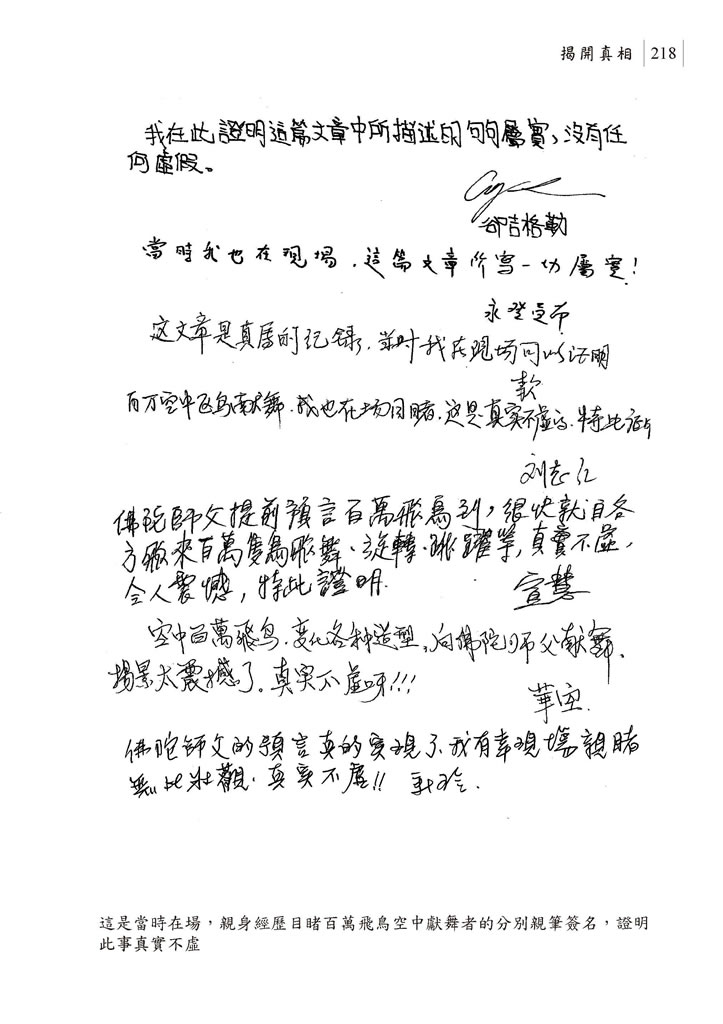 揭開真相 218
我在此證明這篇文章中所描述的句句屬實，沒有任
何虛假。
卻吉格勒
當時我也在現場，這篇文章所寫一切屬實！
永登受布
这文章是真居的纪録，当时我在现场可以证明
款
百万空中飞鸟献舞，我也在场目睹，这是真实不虚的，特此证明
刘志红
佛陀師父提前預言百萬飛鳥到，很快就自各
方飛來百萬隻鳥飛舞、旋轉、跳躍等，真實不虛，
令人震憾，特此證明。
宣慧
空中百萬飛鸟，变化各种造型，向佛陀师父献舞，
場景太震撼了。真实不虚呀!!!
華空
佛陀师父的預言真的实現了，我有幸現場親睹
無比壯觀，真实不虛!!
這是當時在場，親身經歷目睹百萬飛鳥空中獻舞者的分別親筆簽名，證明
此事真實不虛